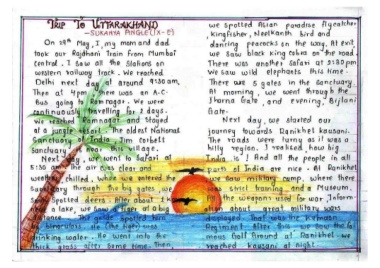 Trip To Uttarakhand
-SUKANYA PINGLE (X-C)
On 28th May, I, my mom and dad
took our Rajdhani Train from Mumbai
Central. I saw all the Stations on
western railway track. We reached
Delhi next day at around 9:30 am.
Then at 4pm there was an A.C.
Bus going to Ramnagar. We were
continuously travelling for 2 days.
We reached Ramnagar and stayed
at a jungle resort. The oldest National
Sanctuary of India, Jim Corbett
Sanctuary is near this village.
Next day, we went to Safari at
5:30 am. The air was clear and
weather chilled, when we entered the
Sanctuary through the big gates, we
Spotted deers. After about 1 k
a lake, we saw a tiger at a big
distance. The guide spotted him
by binoculars. He (the tiger) was
drinking water. He went into the
thick grass after some time. Then,
we spotted Asian paradise flycatcher,
kingfisher, Neelkanth bird and
dancing peacocks on the way. At evil,
we saw black king cobra on the road.
There was another safari at 3:30pm
We saw wild elephants this time.
There are 5 gates in the sanctuary.
At morning, we went through the
Jharna Gate, and evening, Bijlani
Gate.
Next day, we started our
journey towards Ranikhet kausani.
The roads were turning as it was a
hilly region. I realised, how big
India is! And all the people in all
parts of India are nice. At Ranikhet
we saw military camp, where there
was strict training, and a Museum.
the weapons used for war, Inform-
ation about many military ways
displayed. That was of Kumaon
Regiment. After this we saw the fa
mous Golf Ground at Ranikhet. We
reached kausani at night.